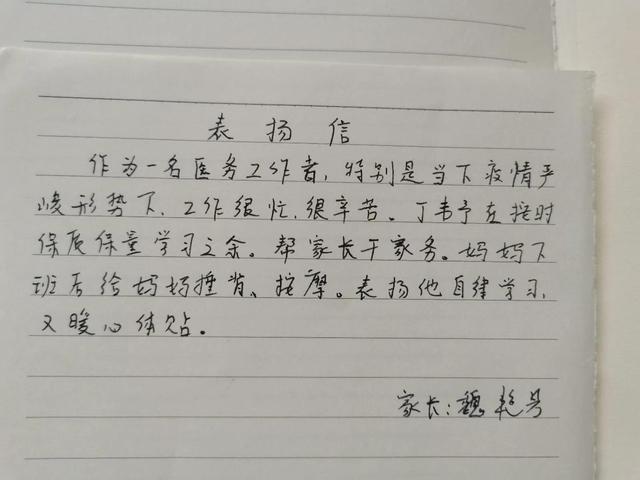 表扬信
作为一名医务工作者，特别是当下疫情严
峻形势下，工作很忙，很辛苦。丁韦予在按时
保质保量学习之余。帮家长干家务。妈妈下
班后给妈妈捶背、按摩。表扬他自律学习，
又暖心体贴。
家长：魏艳